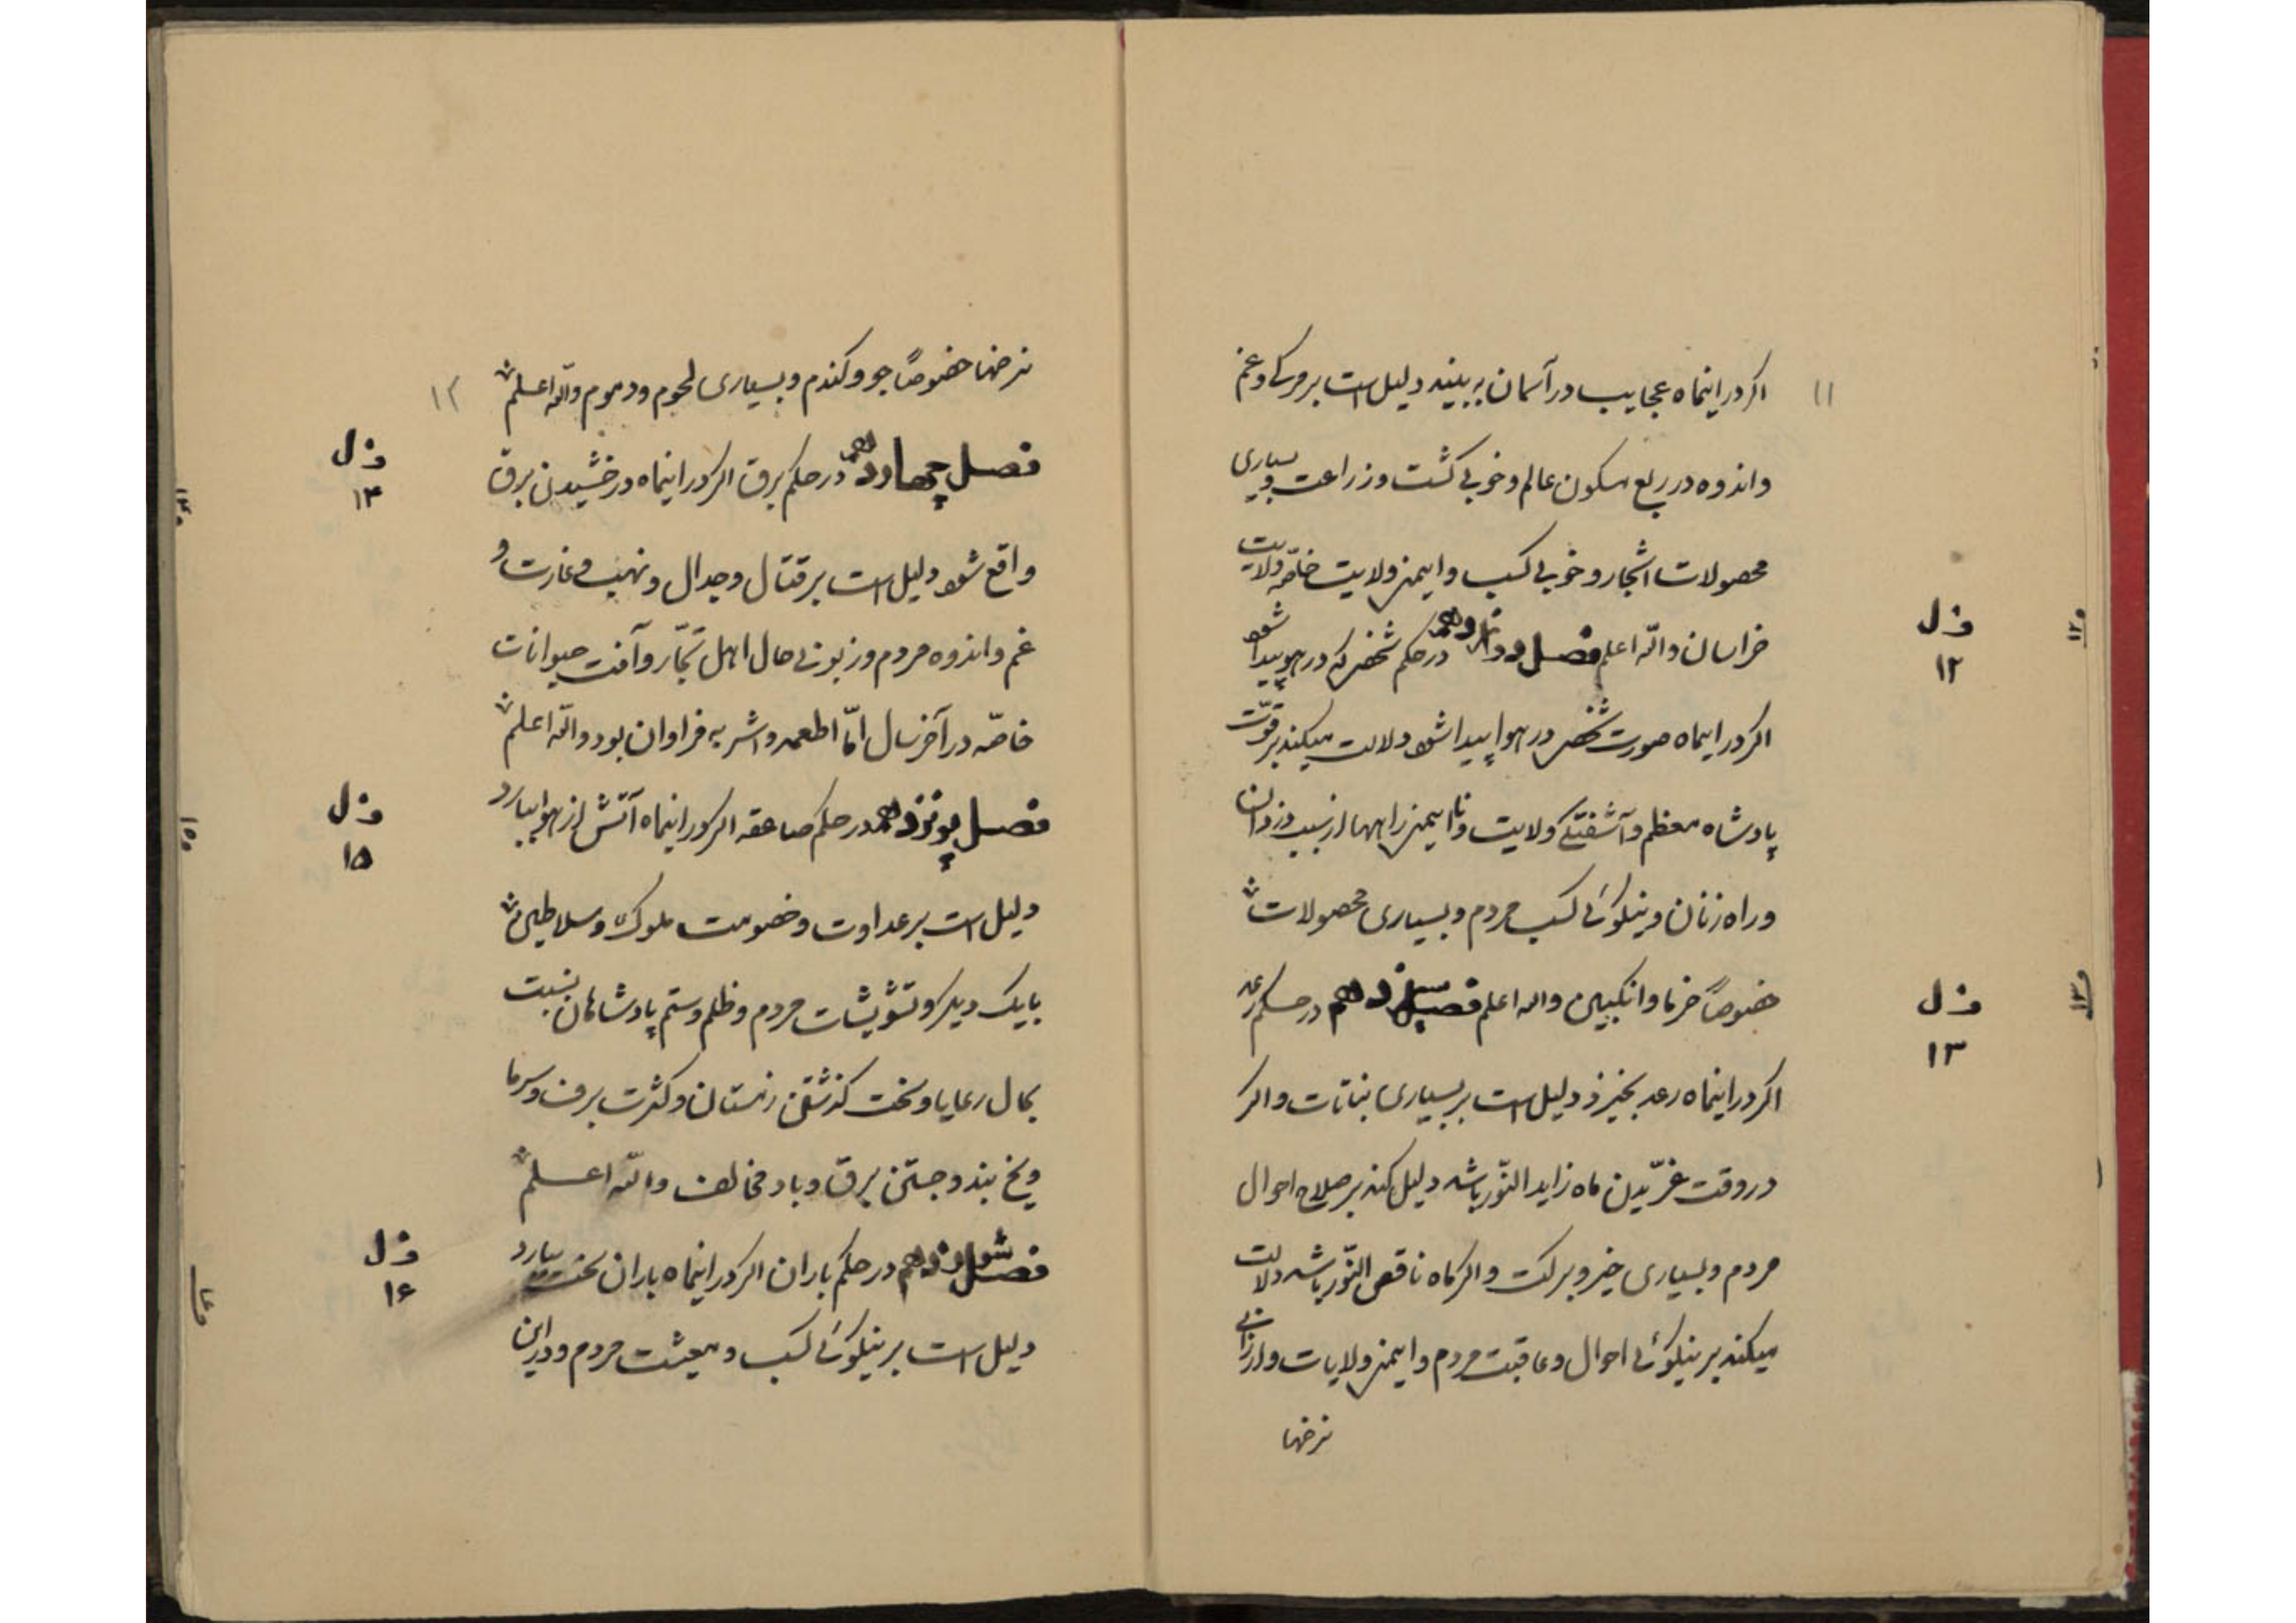 ۱۱
اکر در اینماه عجایب در آسمان به بینند دلیل است بر مرکی و غم
و اندوه در ربع مسکون عالم و خوبی کشت و زراعت و بسیاری
محصولات اشجار و خوبی کسب و ایمنی ولایت خاصّه ولایت
خراسان والله اعلم فصل دوازدهم در حکم شخصی که در هوا پیدا شود
ف ل
۱۲
اکر در اینماه صورت شخصی در هوا پیدا شود دلالت میکند بر قوّت
پادشاه معظم و آشفتکی ولایت و نا ایمنی راهها از سبب دزدان
و راه زنان و نیکوئی کسب مردم و بسیاری محصولات
خصوصاً خرما و انکبین والله اعلم فصل سیزدهم در حکم رعد
ف ل
۱۳
اکر در اینماه رعد بخیزد دلیل است بر بسیاری نباتات و اکر
در وقت غرّیدن ماه زاید النّور باشد دلیل کند بر صلاح احوال
مردم و بسیاری خیر و برکت و اکر ماه ناقص النّور باشد دلالت
میکند بر نیکوئی احوال و عاقبت مردم و ایمنی ولایات و ارزانی
نرخها
۱۲
نرخها خصوصاً جو و کندم و بسیاری لحوم و دسوم والله اعلم
فصل چهاردهم در حکم برق اکر در اینماه درخشیدن برق
ف ل
۱۴
واقع شود دلیل است بر قتال و جدال و نهب و غارت و
غم و اندوه مردم و زبونی حال اهل تجّار و آفت حیوانات
خاصّه در آخر سال امّا اطعمه و اشربه فراوان بود والله اعلم
فصل پونزدهم در حکم صاعقه اکر در اینماه آتش از هوا ببارد
ف ل
۱۵
دلیل است بر عداوت و خصومت ملوک و سلاطین
با یک دیکر و تشویشات مردم و ظلم و ستم پادشاهان نسبت
بحال رعایا و سخت کذشتن زمستان و کثرت برف و سرما
و یخ بند و جستن برق و باد مخالف والله اعلم
فصل شونزدهم در حکم باران اکر در اینماه باران سخت ببارد
ف ل
۱۶
دلیل است بر نیکوئی کسب و معیشت مردم و در این